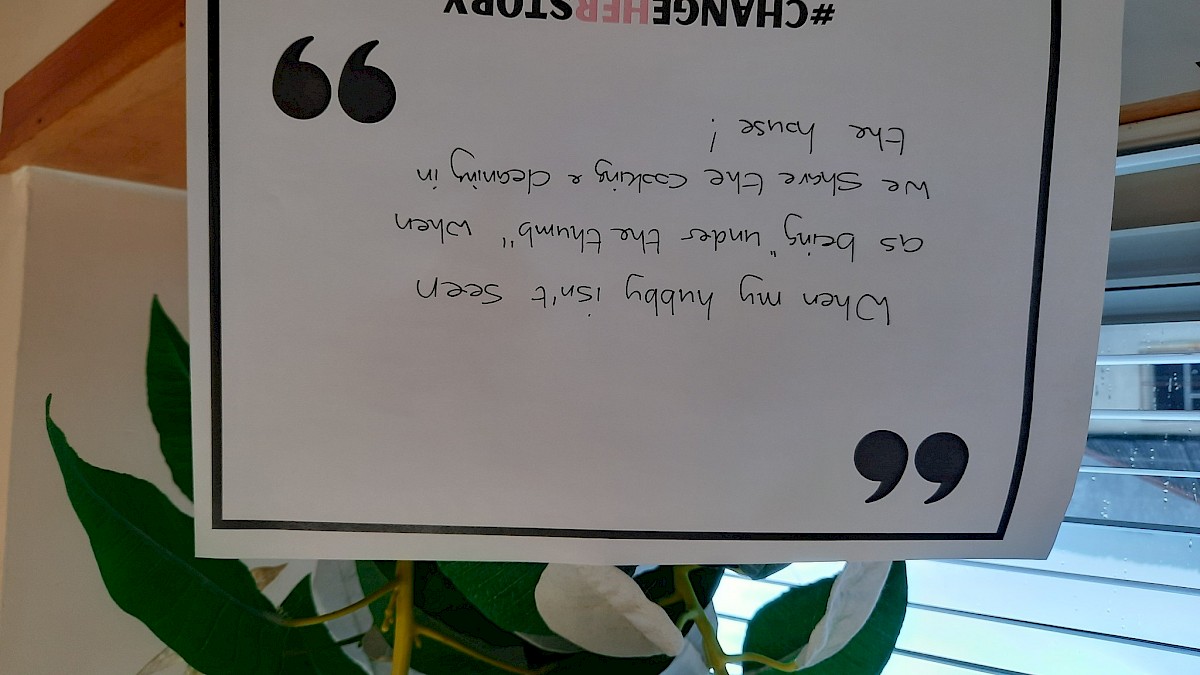 When my hubby isn't seen
as being "under the thumb", when
we share the cooking & cleaning in
the house!
#CHANGEHERSTORY